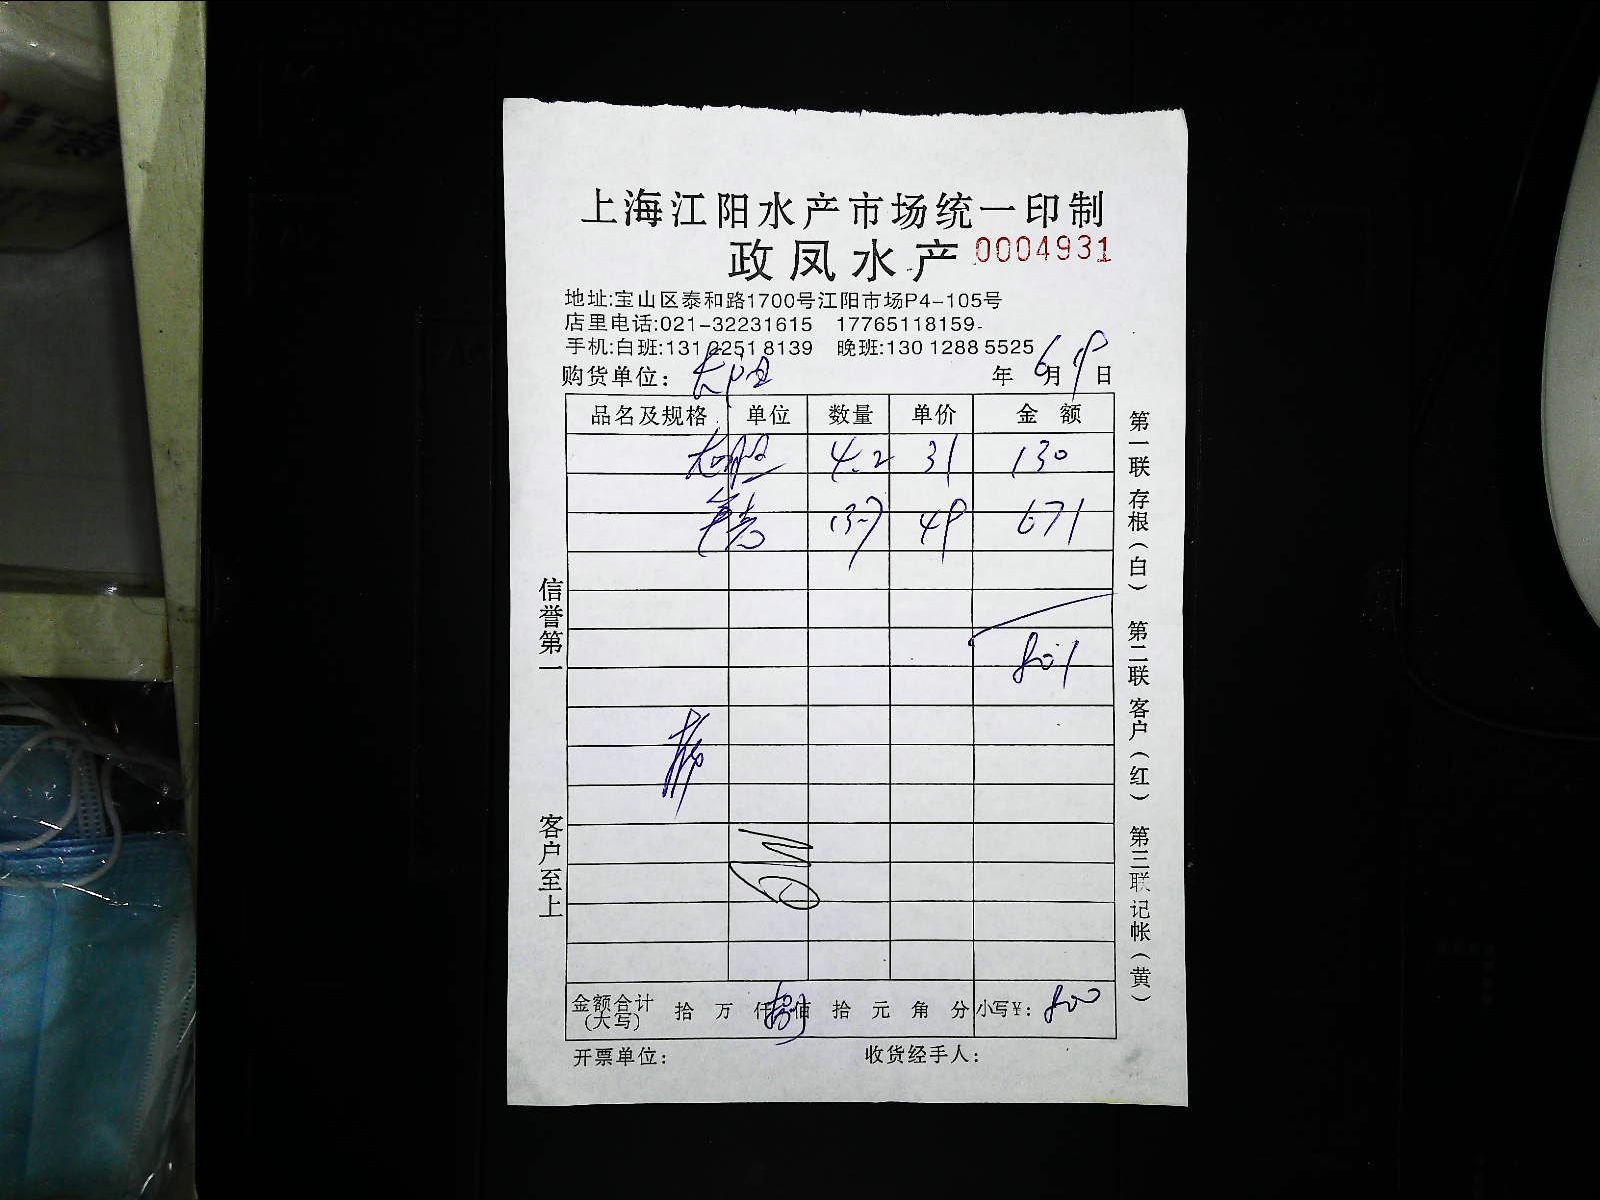 上海江阳水产市场统一印制
政凤水产 0004931
地址:宝山区泰和路1700号江阳市场P4-105号
店里电话:021-32231615 17765118159
手机:白班:131 0251 8139 晚班:130 1288 5525
购货单位: 年 6月19日
品名及规格 单位 数量 单价 金额
4.2 31 130
13.7 49 671
801
金额合计(大写) 拾 万 仟 捌 佰 拾 元 角 分 小写¥: 800
开票单位: 收货经手人:
信誉第一
客户至上
第一联存根(白) 第二联客户(红) 第三联记帐(黄)